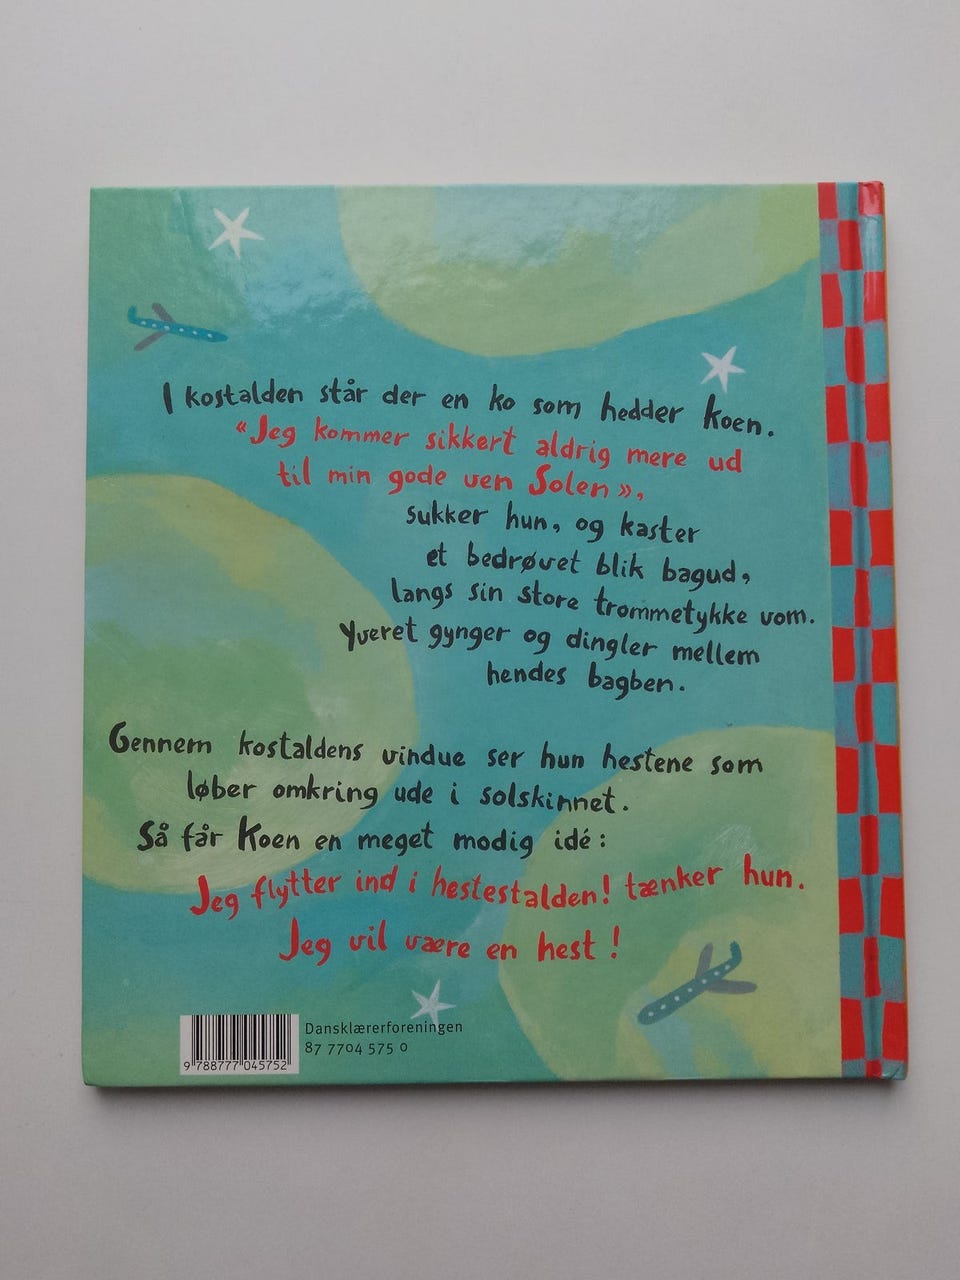 I kostalden står der en ko som hedder Koen.
«Jeg kommer sikkert aldrig mere ud
til min gode ven Solen»,
sukker hun, og kaster
et bedrøvet blik bagud,
langs sin store trommetykke vom.
Yveret gynger og dingler mellem
hendes bagben.
Gennem kostaldens vindue ser hun hestene som
løber omkring ude i solskinnet.
Så får Koen en meget modig idé:
Jeg flytter ind i hestestalden! tænker hun.
Jeg vil være en hest!
Dansklærerforeningen
87 7704 575 0
9 788777 045752